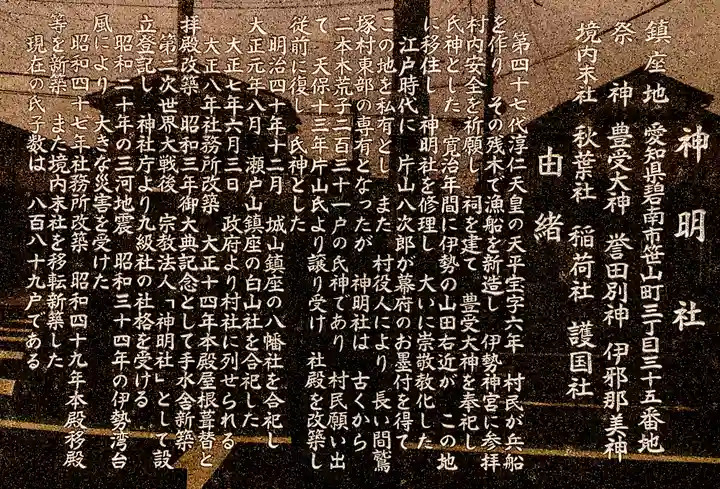 神明社
鎮座地　愛知県碧南市笹山町三丁目三十五番地
祭　神　豊受大神　誉田別神　伊邪那美神
境内末社　秋葉社　稲荷社　護国社
由緒
第四十七代淳仁天皇の天平宝字六年　村民が兵船
を作り　その残木で漁船を新造し　伊勢神宮に参拝
村内安全を祈願し　祠を建て　豊受大神を奉祀し
氏神とした　寛治年間に伊勢の山田右近が　この地
に移住し　神明社を修理し　大いに崇敬教化した
江戸時代に　片山八次郎が幕府のお墨付を得て
この地を私有とし　また　村役人により　長い間鷲
塚村東部の専有となったが　神明社は　古くから
二本木荒子二百三十一戸の氏神であり　村民願い出
て　天保十三年片山氏より譲り受け　社殿を改築し
従前に復し　氏神とした
明治四十年十二月　城山鎮座の八幡社を合祀し
大正元年八月　瀬戸山鎮座の白山社を合祀した
大正七年六月三日　政府より村社に列せられる
大正八年社務所改築　大正十四年本殿屋根葺替と
拝殿改築　昭和三年御大典記念として手水舎新築
第二次世界大戦後　宗教法人「神明社」として設
立登記し　神社庁より九級社の社格を受ける
昭和二十年の三河地震　昭和三十四年の伊勢湾台
風により　大きな災害を受けた
昭和四十七年社務所改築　昭和四十九年本殿移殿
等を新築　また境内末社を移転新築した
現在の氏子数は　八百八十九戸である